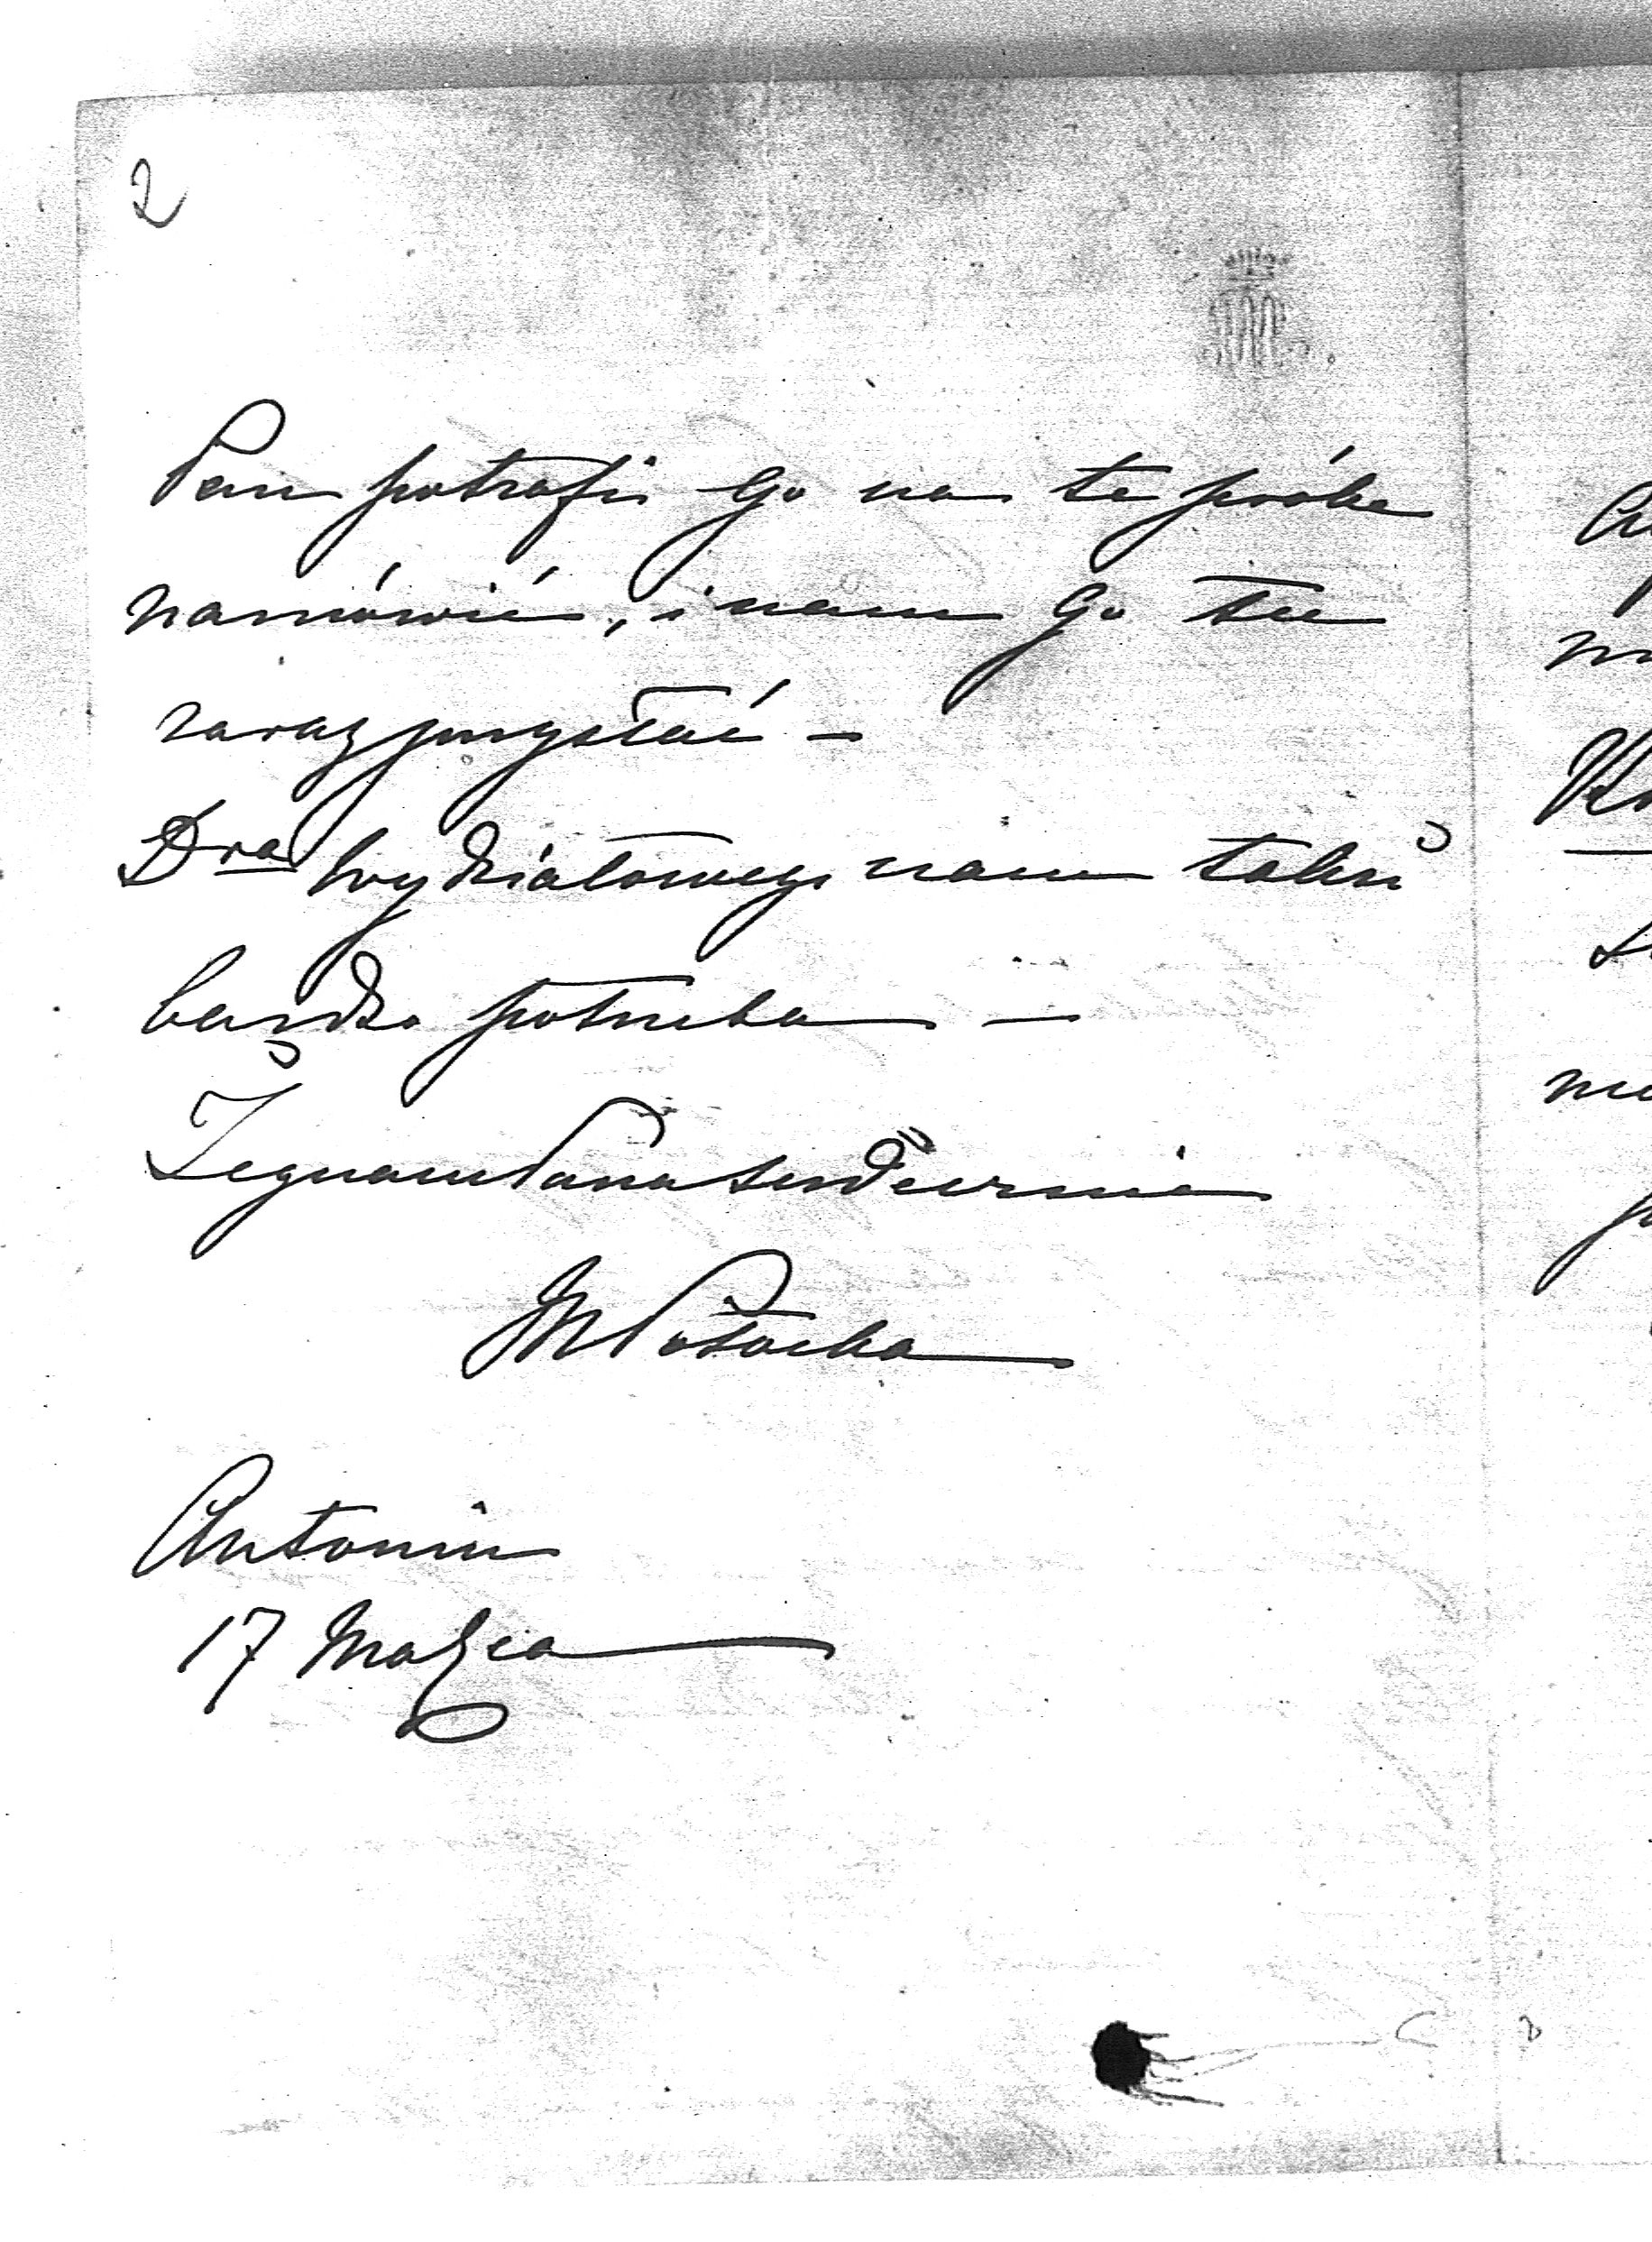 2
Pan potrafi Go na te próbe
namówić, i nam Go tu
zaraz przysłać –
Dra Wydziałowego nam także
bardzo potrzeba –
Żegnam Pana serdecznie
MPotocka
Antonin
17 Maja